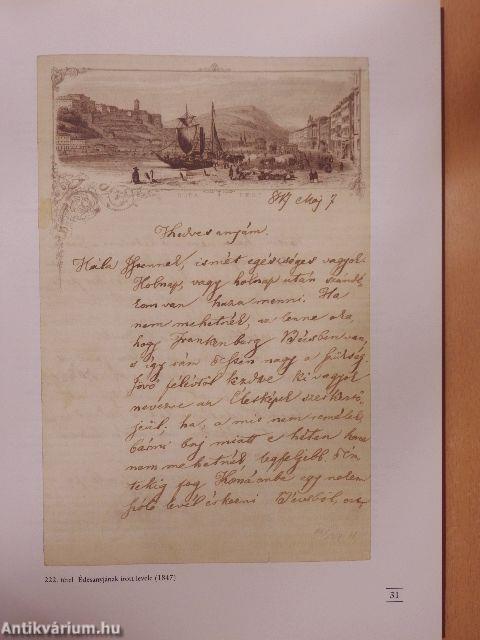 847 Máj 7
Kedves anyám.
Hála Istennek, ismét egészséges vagyok.
Holnap, vagy holnap után szándé-
kom van haza menni. Ha
nem mehetnék, az lenne oka,
hogy Frankenburg Bécsben van,
s így rám
nagy a szükség.
Jövő félévtől kezdve ki vagyok
nevezve az Életképek szerkesztő-
jéül; ha, a mit nem remélek,
bármi baj miatt e héten haza
nem mehetnék legfeljebb
fog Komáromba egy nekem
szóló levél érkezni Bécsből,
222. tétel Édesanyjának írott levele (1847)
31
Antikvárium.hu